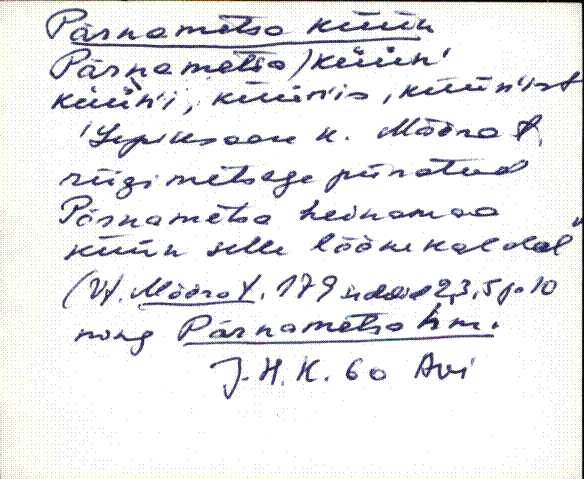 Pärnametsa küün
Pärnametsa) küün'
küün'i, küün'is, küün'ist
"Lepiksaare k. Mõõra t.
riigimetsaga piiratud
Pärnametsa heinamaa
küün selle läänekaldal"
(Vt. Mõõra t. 179 2,3,5 ja 10
ning Pärnametsa hm.
J. H. K. 60 Avi